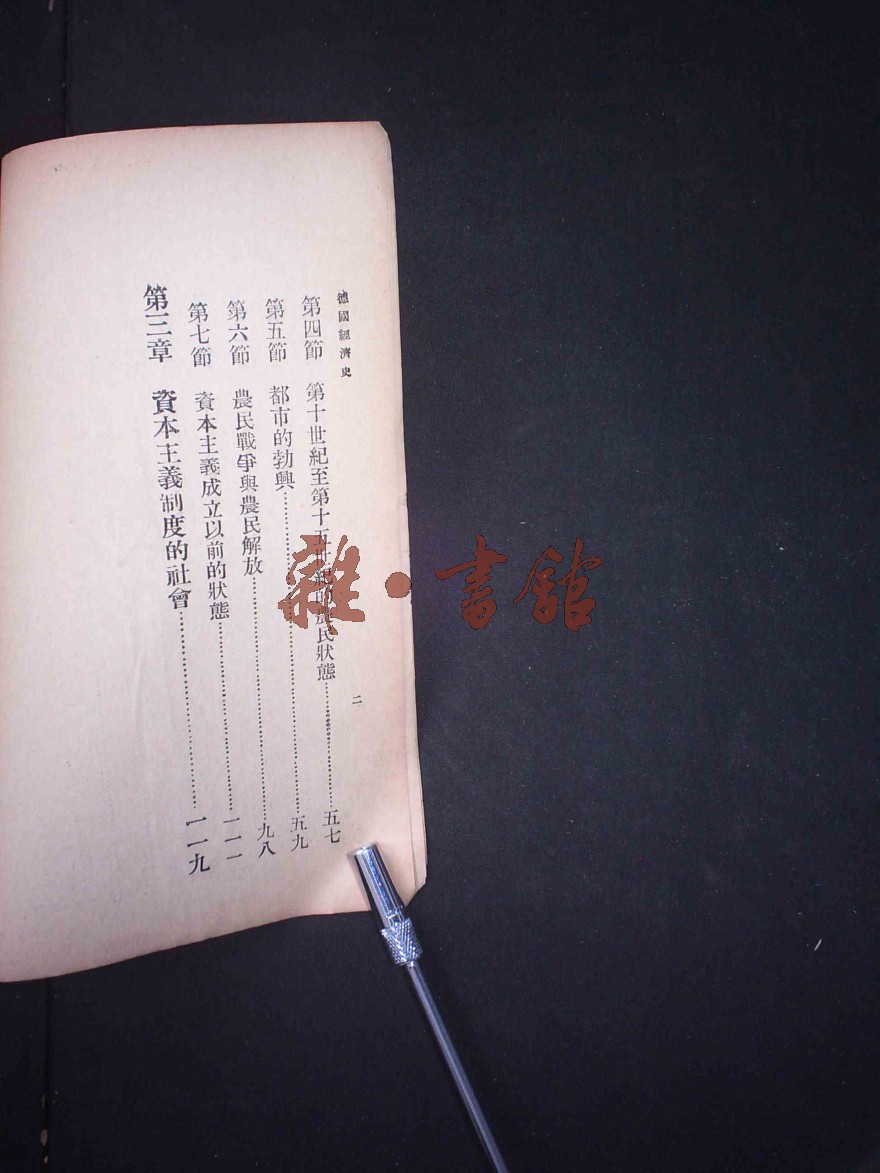 德國經濟史
第四節 第十世紀至第十五世紀的農民狀態……五七
第五節 都市的勃興……五九
第六節 農民戰爭與農民解放……九八
第七節 資本主義成立以前的狀態……一一一
第三章 資本主義制度的社會……一一九
二
雜·書館